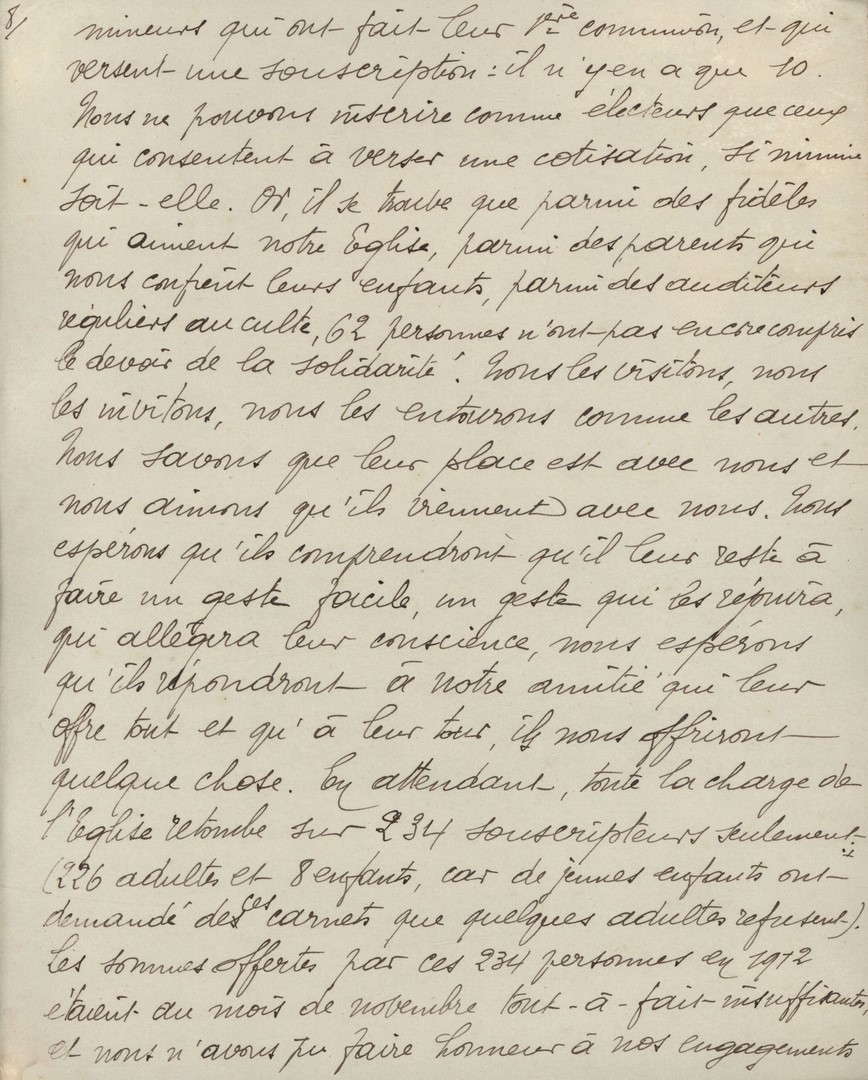 8/
mineurs qui ont fait leur 1ère communion, et qui
versent une souscription : il n'y en a que 10.
Nous ne pouvons inscrire comme électeurs que ceux
qui consentent à verser une cotisation, si minime
soit-elle. Or, il se trouve que parmi des fidèles
qui aiment notre Eglise, parmi des parents qui
nous confient leurs enfants, parmi des auditeurs
réguliers au culte, 62 personnes n'ont pas encore compris
le devoir de la solidarité ! Nous les visitons, nous
les invitons, nous les entourons comme les autres.
Nous savons que leur place est avec nous et
nous aimons qu'ils viennent avec nous. Nous
espérons qu'ils comprendront qu'il leur reste à
faire un geste facile, un geste qui les réjouira,
qui allègera leur conscience, nous espérons
qu'ils répondront à notre amitié qui leur
offre tout et qu'à leur tour, ils nous offriront
quelque chose. En attendant, toute la charge de
l'Eglise retombe sur 234 souscripteurs seulement
(226 adultes et 8 enfants, car de jeunes enfants ont
demandé des ces carnets que quelques adultes refusent).
Les sommes offertes par ces 234 personnes en 1912
étaient au mois de novembre tout-à-fait insuffisantes,
et nous n'avons pu faire honneur à nos engagements